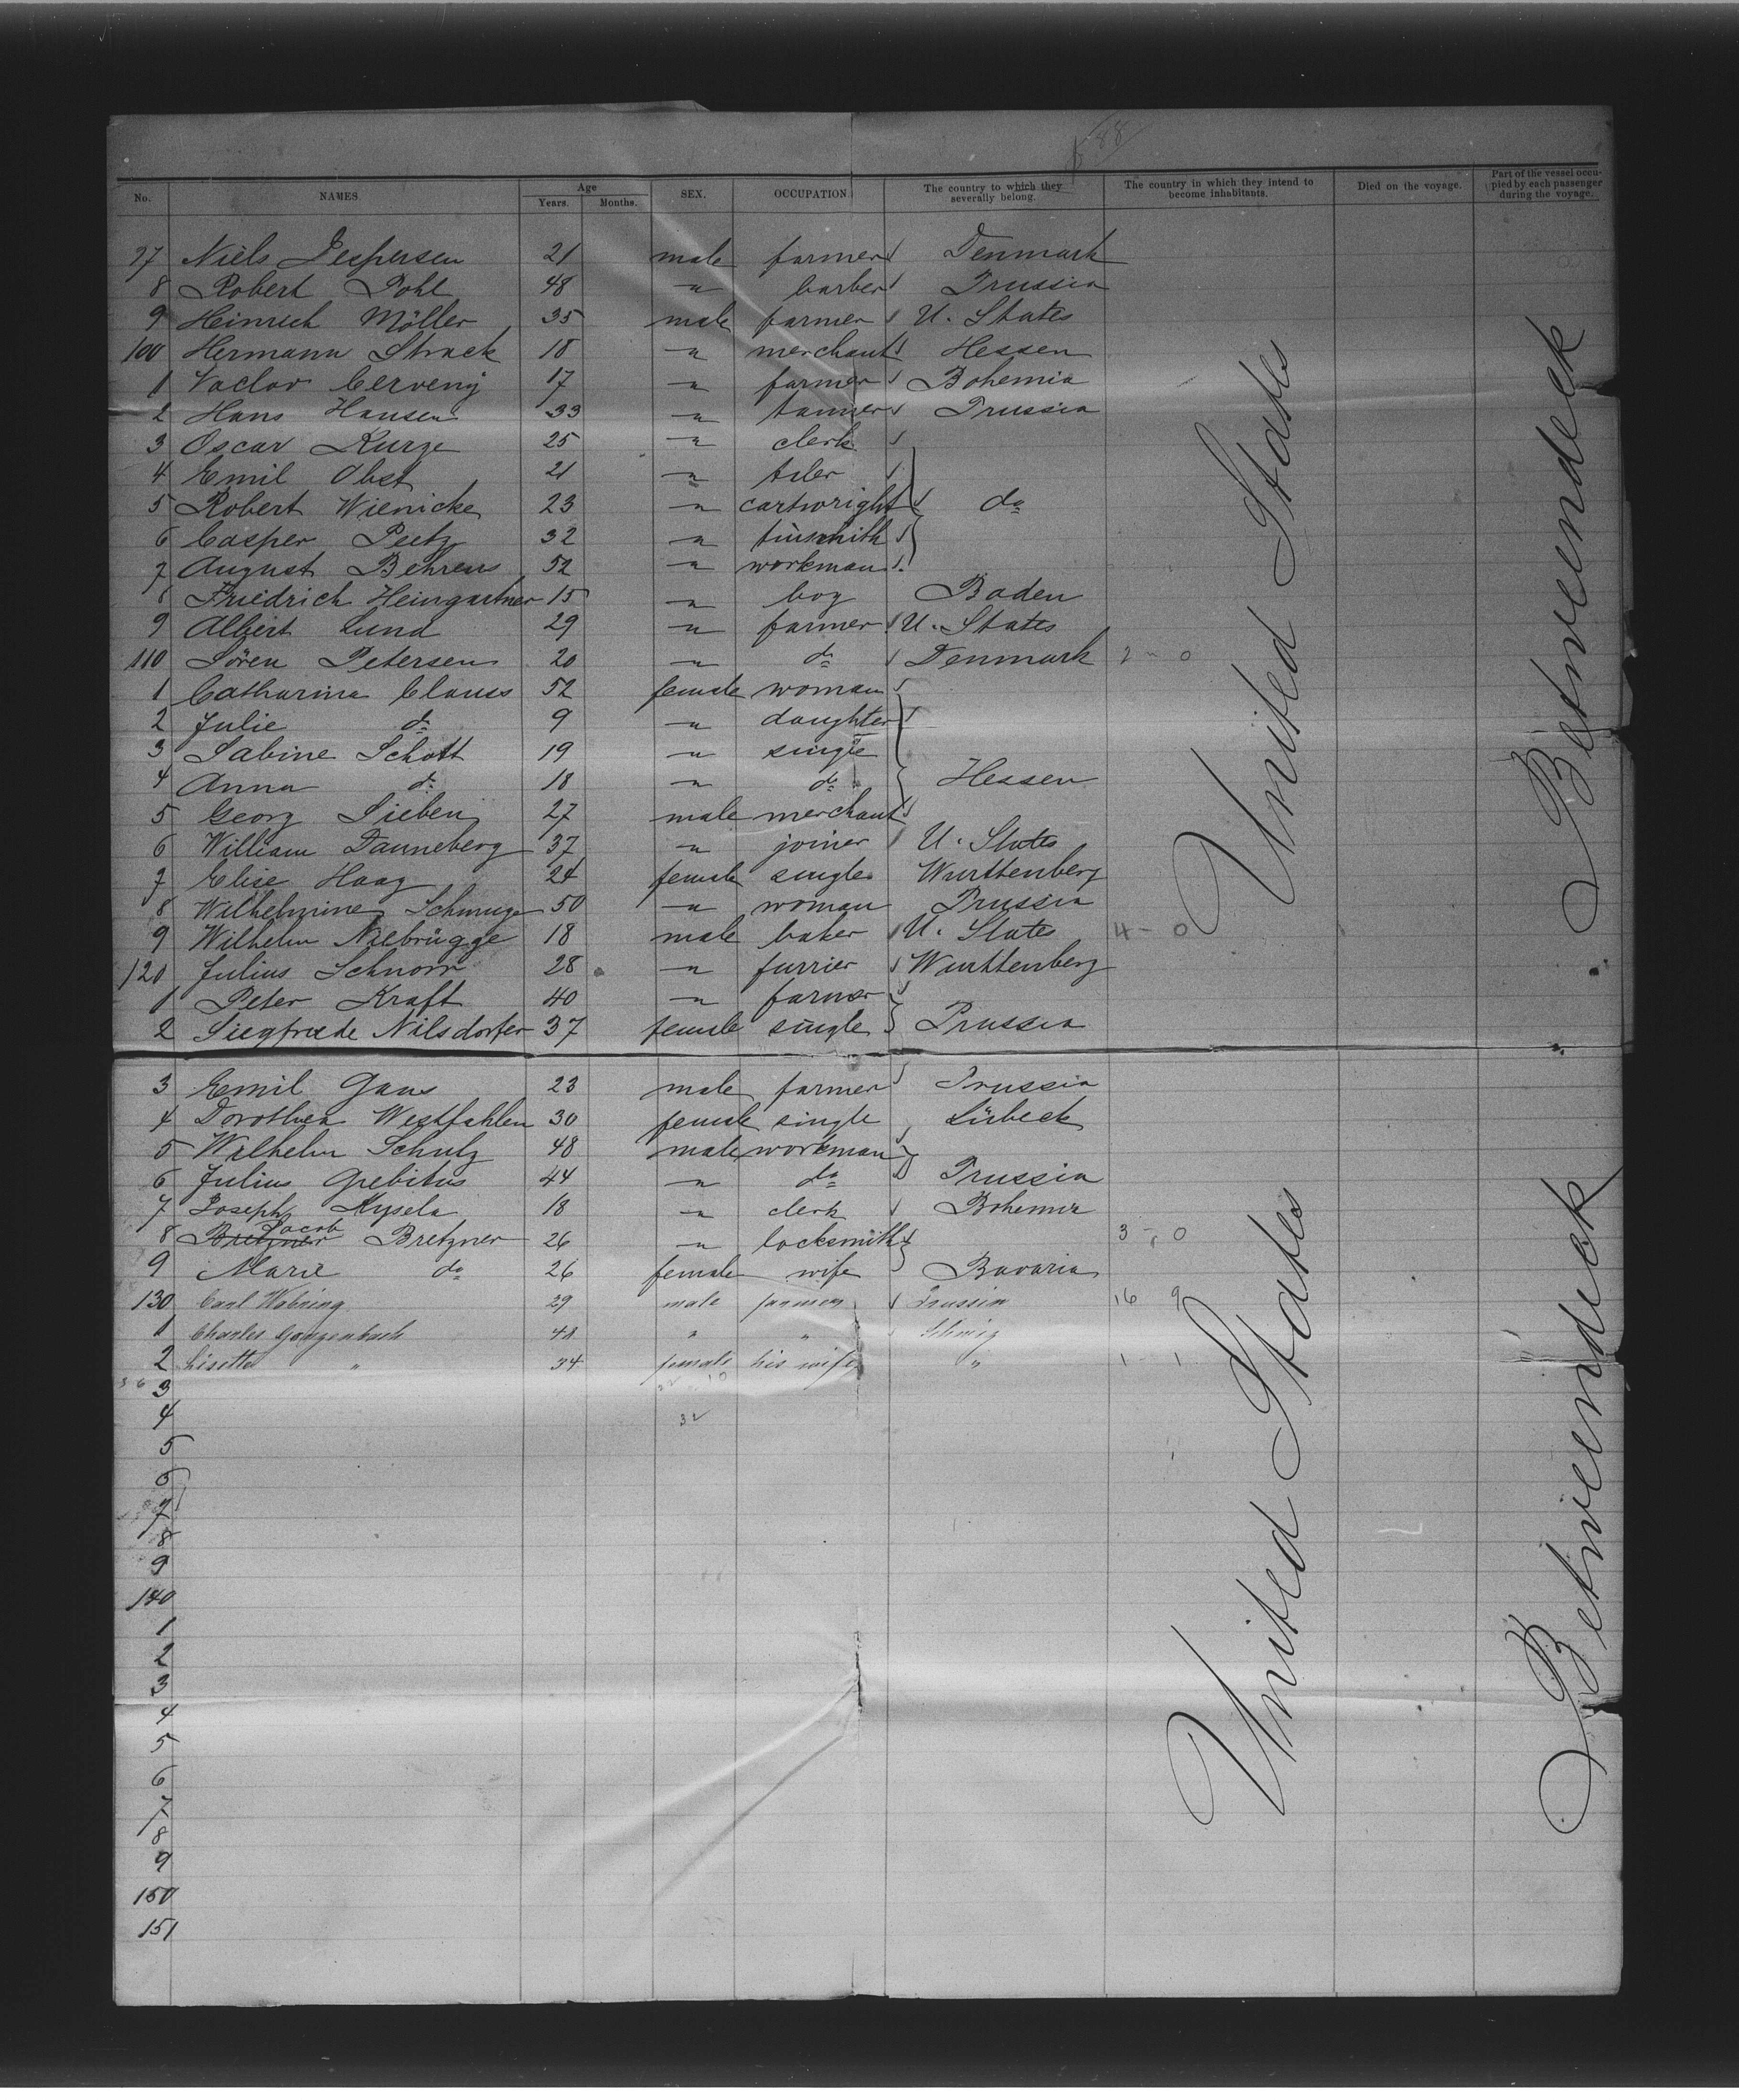 88
No. NAMES. Age Years. Months. SEX. OCCUPATION. The country to which they severally belong. The country in which they intend to become inhabitants. Died on the voyage. Part of the vessel occupied by each passenger during the voyage.
97 Niels Jespersen 21 male farmer Denmark
8 Robert Pohl 48 " barber Prussia
9 Heinrich Möller 35 male farmer U. States
100 Hermann Strack 18 " merchant Hessen
1 Vaclav Cerveny 17 " farmer Bohemia
2 Hans Hansen 33 " tanner Prussia
3 Oscar Kurze 25 " clerk
4 Emil Obst 21 " tiler
5 Robert Wienicke 23 " cartwright do
6 Casper Peetz 32 " tinsmith
7 August Behrens 52 " workman
8 Friedrich Heingartner 15 " boy Baden
9 Albert Lund 29 " farmer U. States
110 Sören Petersen 20 " do Denmark 2 - 0
1 Catharina Clauss 52 female woman
2 Julie do 9 " daughter
3 Sabine Schott 19 " single
4 Anna do 18 " do Hessen
5 Georg Sieben 27 male merchant
6 William Danneberg 37 " joiner U. States
7 Elise Haag 24 female single Wurttenberg
8 Wilhelmine Schmuge 50 " woman Prussia
9 Wilhelm Niebrügge 18 male baker U. States 4 - 0
120 Julius Schnorr 28 " furrier Wurttenberg
1 Peter Kraft 40 " farmer
2 Siegfriede Nilsdorfer 37 female single Prussia
3 Emil Gans 23 male farmer Prussia
4 Dorothea Westfahlen 30 female single Lübeck
5 Wilhelm Schulz 48 male workman
6 Julius Grebitus 44 " do Prussia
7 Joseph Kysela 18 " clerk Bohemia
8 Bretzner Jacob Bretzner 26 " locksmith 3 - 0
9 Marie do 26 female wife Bavaria
130 Carl Wobring 29 male farmer Prussia 16 9
1 Charles Gonzenbach 48 " " Schweiz
2 Lisette " 34 female his wife " 1 - 1
3
4 32
5
6
7
8
9
140
1
2
3
4
5
6
7
8
9
150
151
United States
Betweendeck
United States
Betweendeck